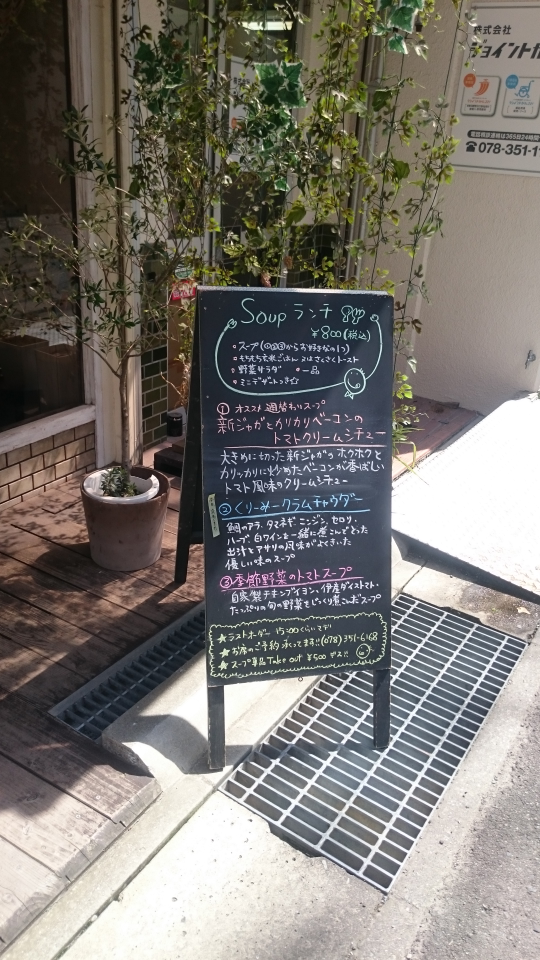 Soup ランチ
¥800(税込)
・スープ(①②③からお好きなの1つ)
・もちもち玄米ごはん 又は さくさくトースト
・野菜サラダ ・一品
・ミニデザートつき☆
① オススメ 週替わりスープ
新ジャガとカリカリベーコンの
トマトクリームシチュー
大きめに切った新ジャガの ホクホクと
カリッカリに炒めたベーコンが香ばしい
トマト風味のクリームシチュー
② くりーみークラムチャウダー
鯛のアラ、タマネギ、ニンジン、セロリ、
ハーブ、白ワインを一緒に煮こんでとった
出汁とアサリの風味がよくきいた
優しい味のスープ
③ 季節野菜のトマトスープ
自家製チキンブイヨン、伊産ダイストマト、
たっぷりの旬の野菜をじっくり煮こんだスープ
★ラストオーダー 15:00くらいマデ!!
★お席のご予約承ってます!!(078)351-6168
★スープ単品Take out ¥500 デス!!
株式会社
ジョイント
電話相談連絡は365日24時間
☎078-351-1